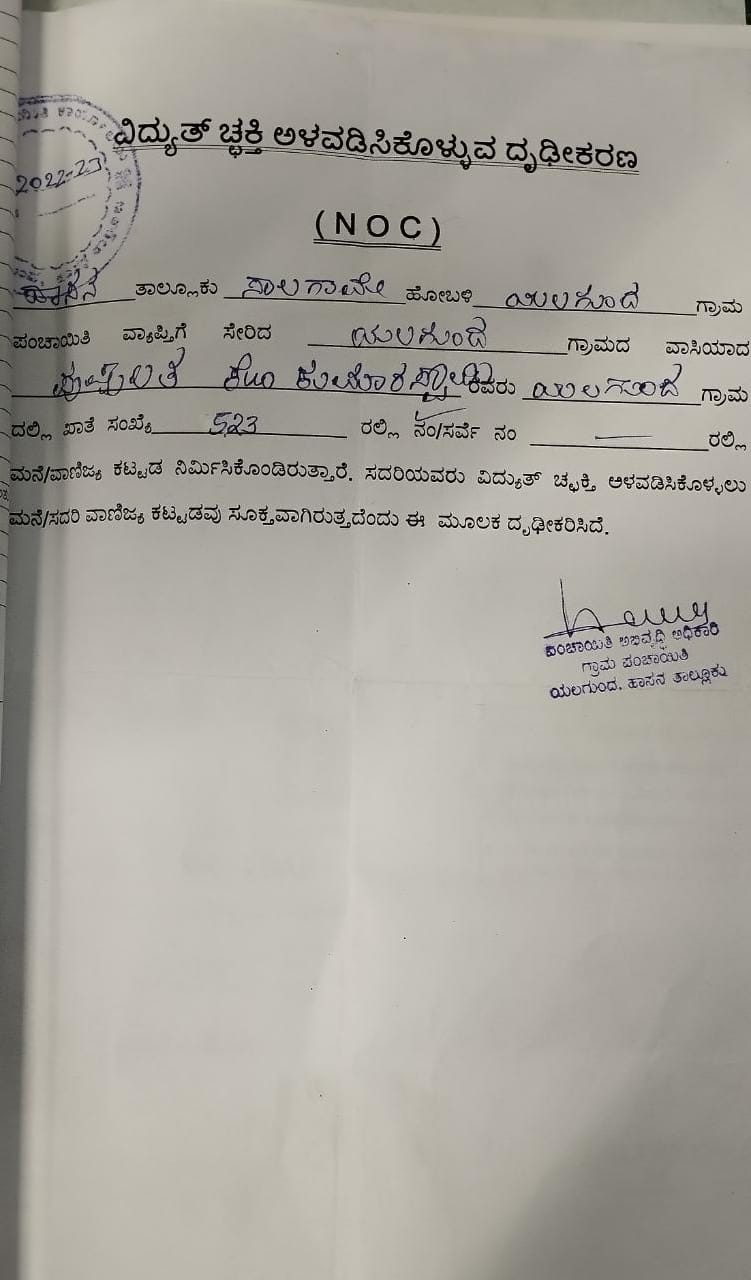 ವಿದ್ಯುತ್ ಚ್ಛಕ್ತಿ ಅಳವಡಿಸಿಕೊಳ್ಳುವ ದೃಢೀಕರಣ
2022-23
(NOC)
ಹಾಸನ ತಾಲ್ಲೂಕು ಸಾಲಗಾಮೇ ಹೋಬಳಿ ಯಲಗುಂದ ಗ್ರಾಮ
ಪಂಚಾಯಿತಿ ವ್ಯಾಪ್ತಿಗೆ ಸೇರಿದ ಯಲಗುಂದ ಗ್ರಾಮದ ವಾಸಿಯಾದ
ಪುಷ್ಪಲತ ಕೋಂ ಕುಮಾರಸ್ವಾಮಿ ರವರು ಯಲಗುಂದ ಗ್ರಾಮ
ದಲ್ಲಿ ಖಾತೆ ಸಂಖ್ಯೆ 523 ರಲ್ಲಿ ನಂ/ಸರ್ವೆ ನಂ — ರಲ್ಲಿ
ಮನೆ/ವಾಣಿಜ್ಯ ಕಟ್ಟಡ ನಿರ್ಮಿಸಿಕೊಂಡಿರುತ್ತಾರೆ. ಸದರಿಯವರು ವಿದ್ಯುತ್ ಚ್ಛಕ್ತಿ ಅಳವಡಿಸಿಕೊಳ್ಳಲು
ಮನೆ/ಸದರಿ ವಾಣಿಜ್ಯ ಕಟ್ಟಡವು ಸೂಕ್ತವಾಗಿರುತ್ತದೆಂದು ಈ ಮೂಲಕ ದೃಢೀಕರಿಸಿದೆ.
ಪಂಚಾಯಿತಿ ಅಭಿವೃದ್ಧಿ ಅಧಿಕಾರಿ
ಗ್ರಾಮ ಪಂಚಾಯಿತಿ
ಯಲಗುಂದ. ಹಾಸನ ತಾಲ್ಲೂಕು